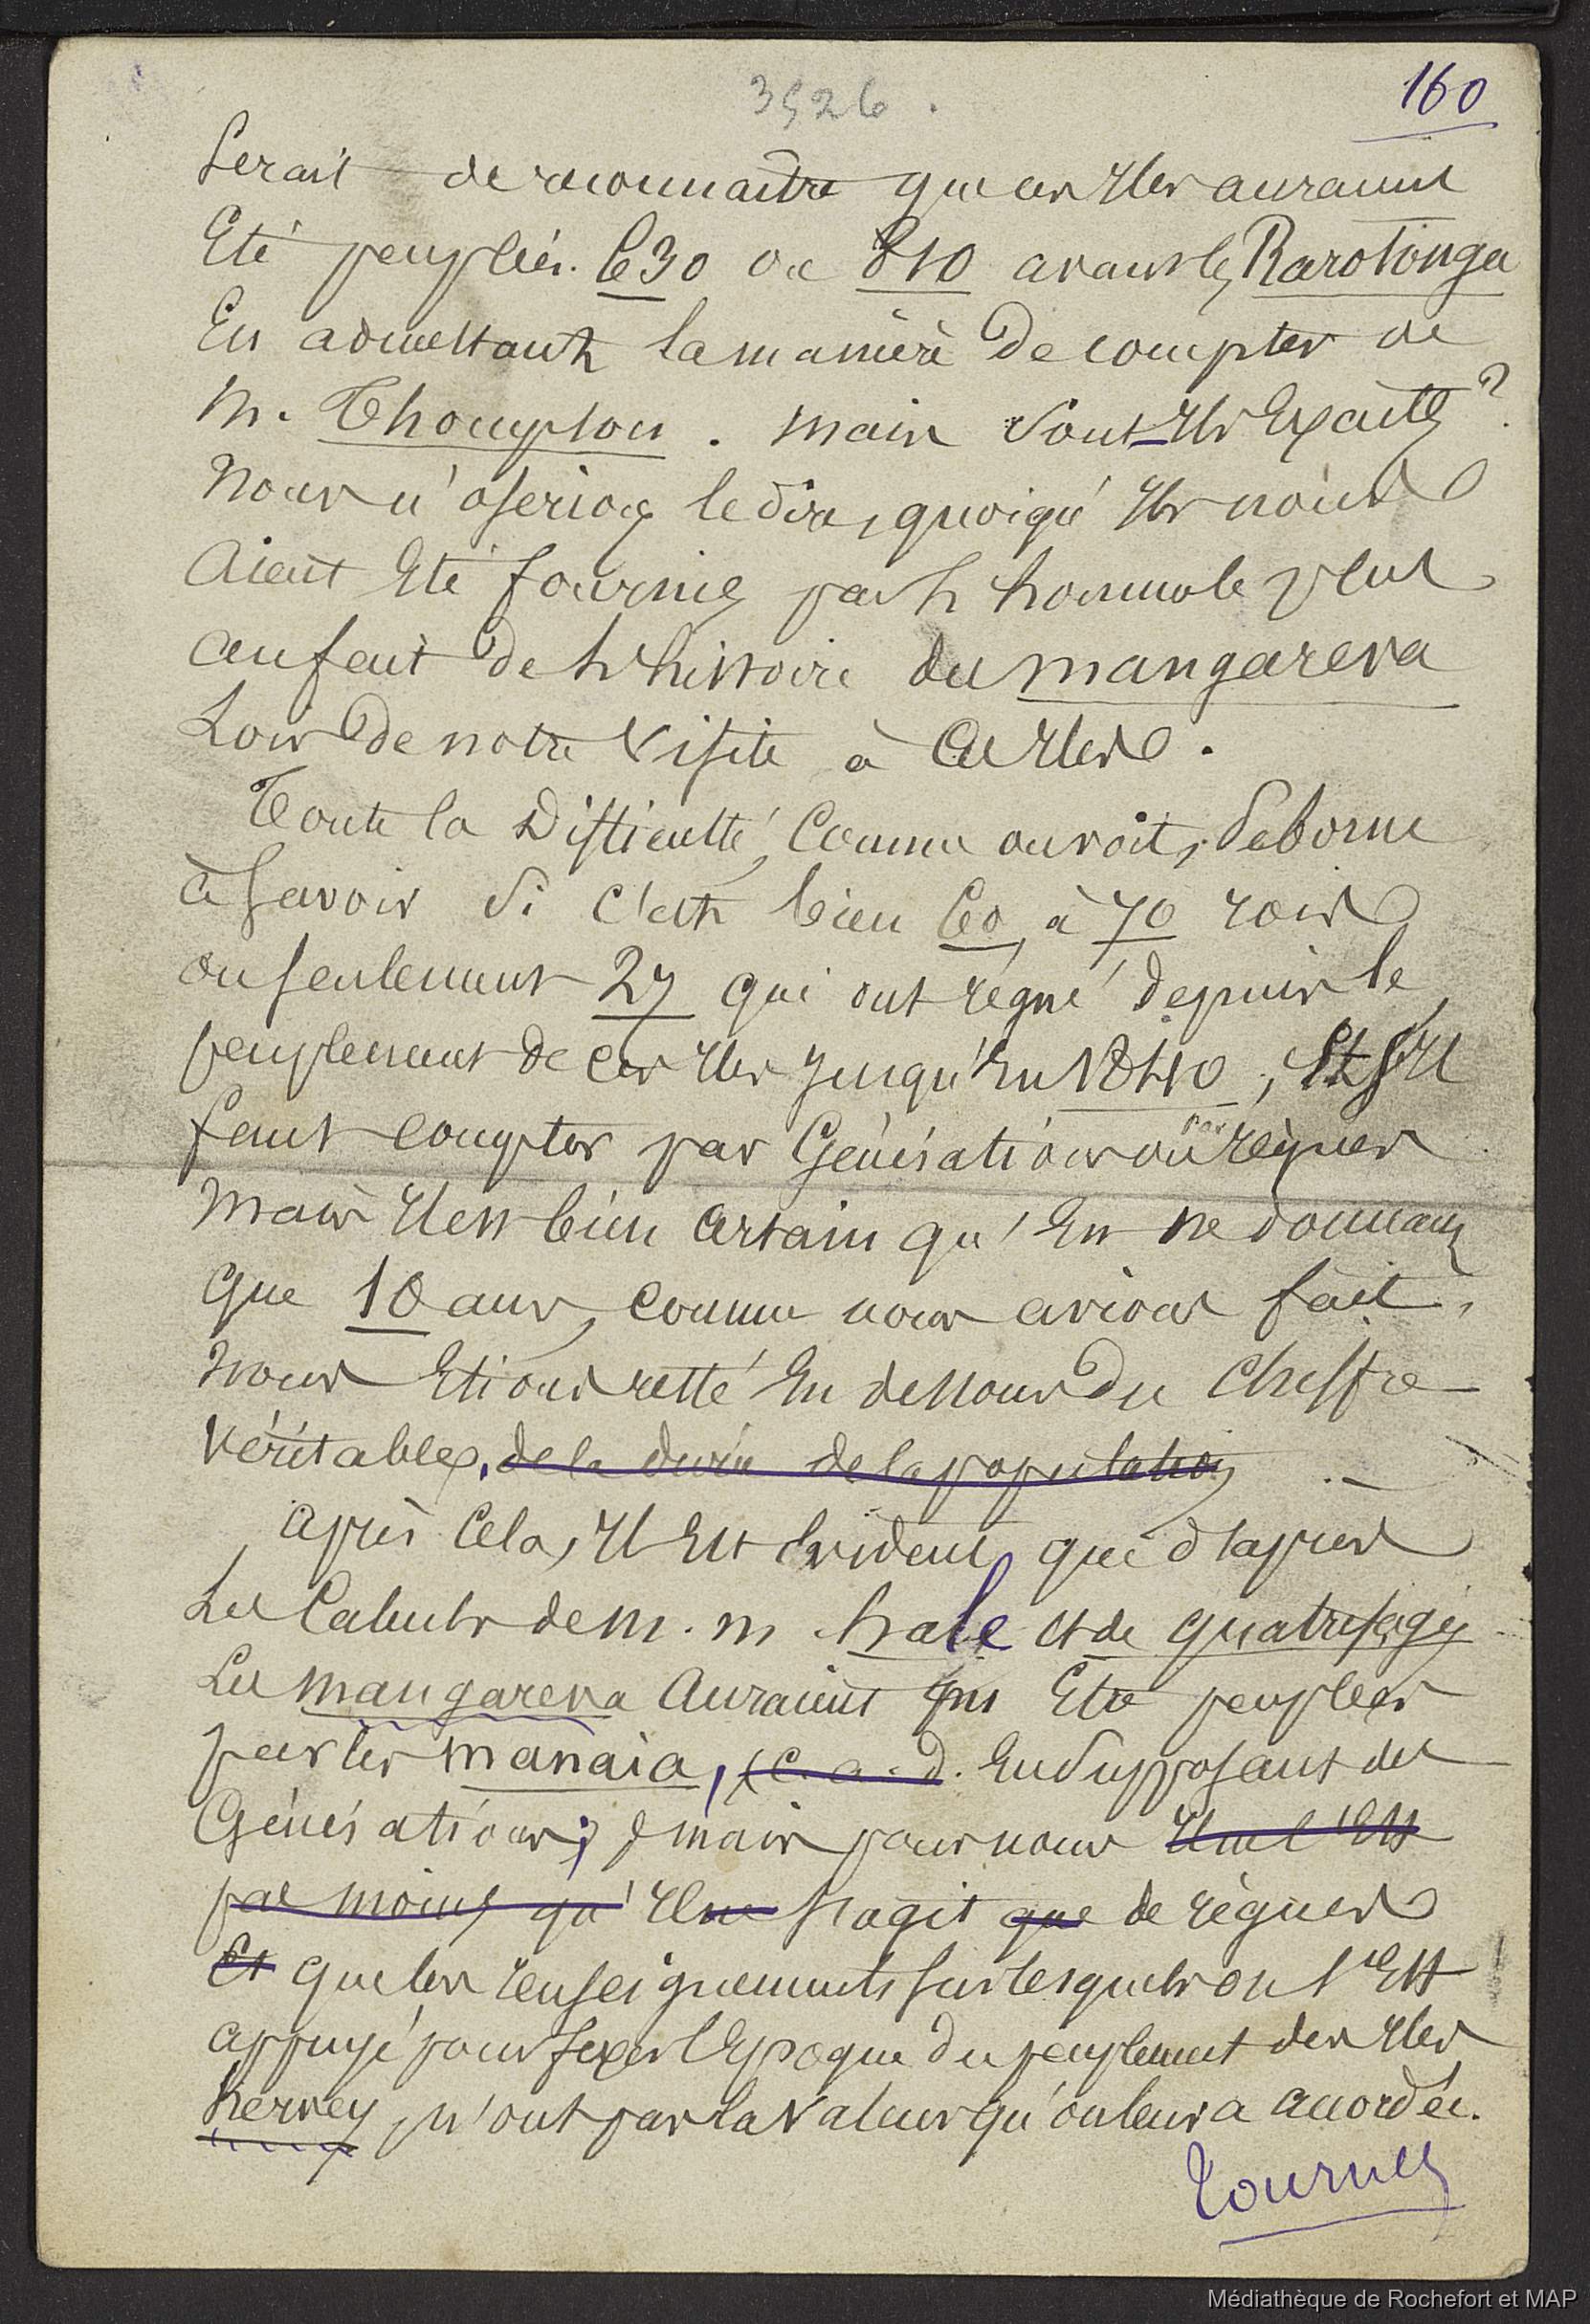 3526.
160
serait de reconnaitre que ces Iles auraient
Eté peuplées. 630 ou 810 avant les Rarotonga
En admettant la manière de compter de
M. Thompson. mais sont-ils Exacts?
Nous n'oserions le dire, quoiqu'ils nous
aient Eté fournis par l'homme le plus
au fait de l'histoire des mangareva
Lors de notre visite à ces Iles.
Toute la Difficulté, comme on voit, se borne
à savoir si c'est bien 60 à 70 rois
ou seulement 27 qui ont règné depuis le
peuplement de ces Iles jusqu'En 1840; Et s'Il
faut compter par Générations ou par règnes
mais Il est bien certain qu'En ne donnant
que 10 ans, comme nous avions fait,
nous Etions resté En dessous du chiffre
véritable. de la durée de la population
après cela, Il Est Evident que d'après
Les calculs de M. M. hale et de quatrefages
Les mangareva auraient pu Etre peuplées
par les manaia, (c. a. d. En supposant des
Générations; mais pour nous Il ne l'Est
pas moins qu'Il ne s'agit que de règnes
Et que les renseignements sur lesquels on s'Est
appuyé pour fixer l'Epoque du peuplement des Iles
hervey, n'ont pas la valeur qu'on leur a accordée.
Tournez
Médiathèque de Rochefort et MAP